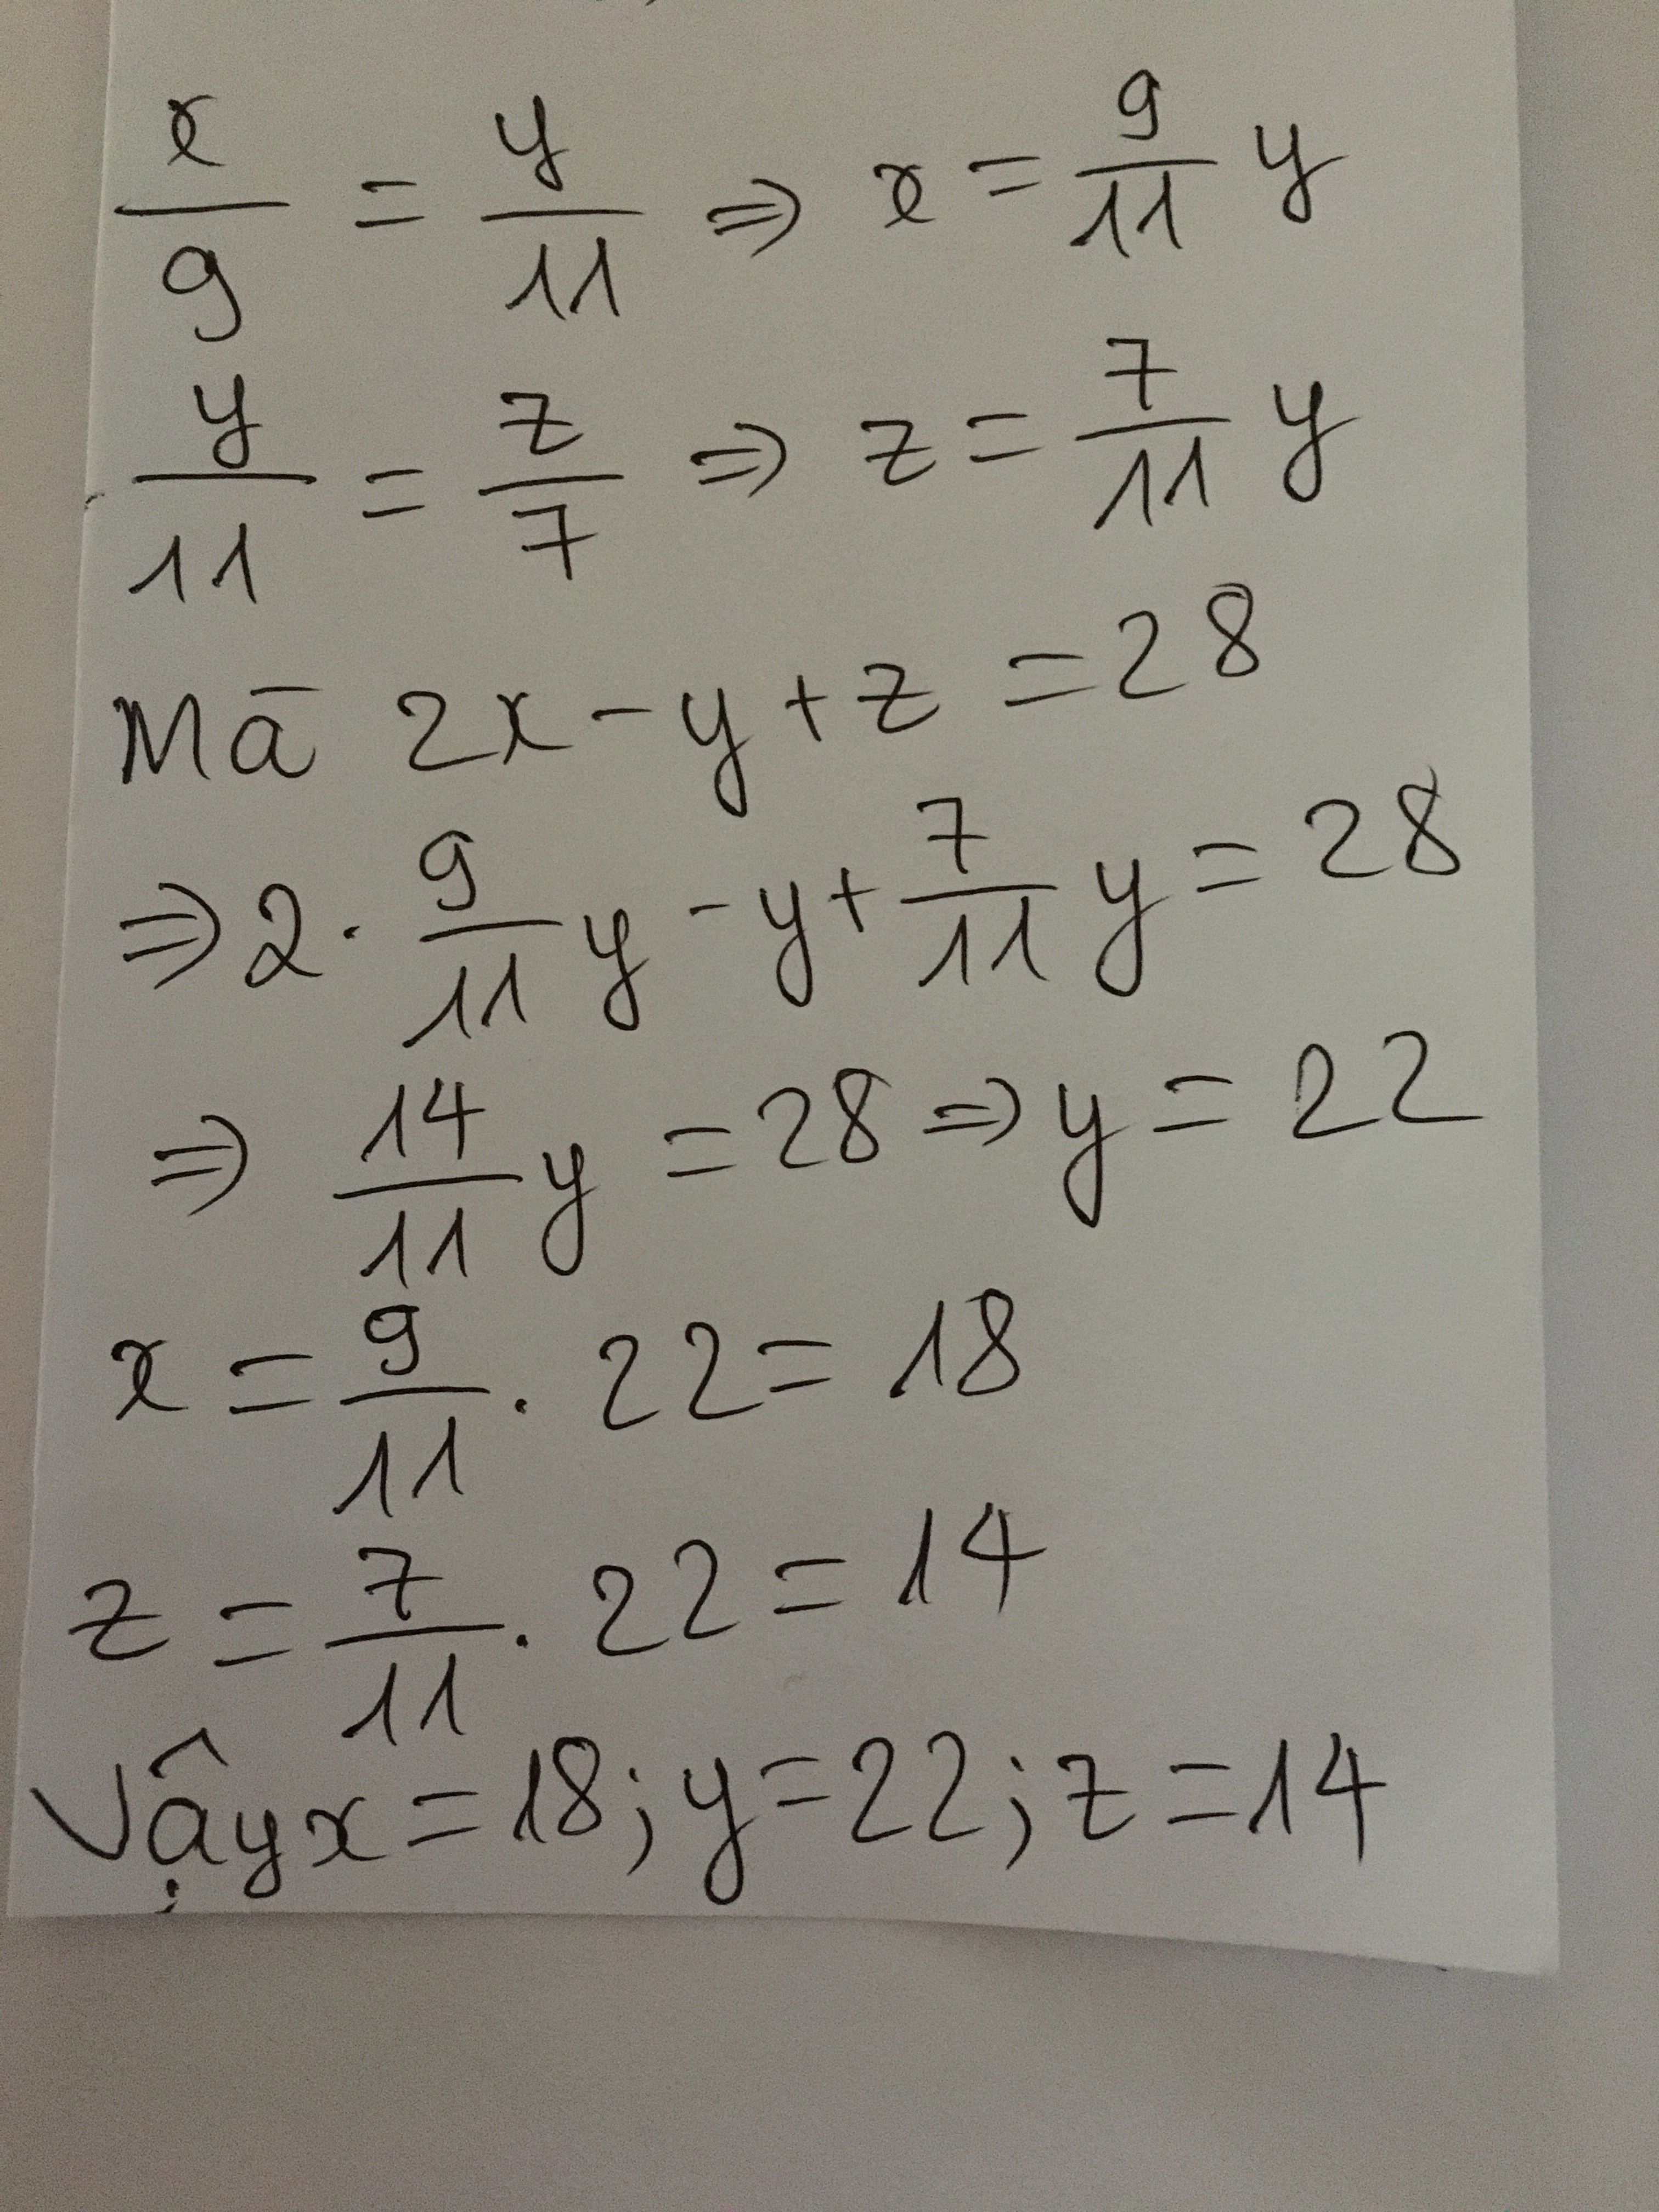 x/9 = y/11 => x = 9/11 y
y/11 = z/7 => z = 7/11 y
Mā 2x - y + z = 28
=> 2 . 9/11 y - y + 7/11 y = 28
=> 14/11 y = 28 => y = 22
x = 9/11 . 22 = 18
z = 7/11 . 22 = 14
Vậy x = 18; y = 22; z = 14